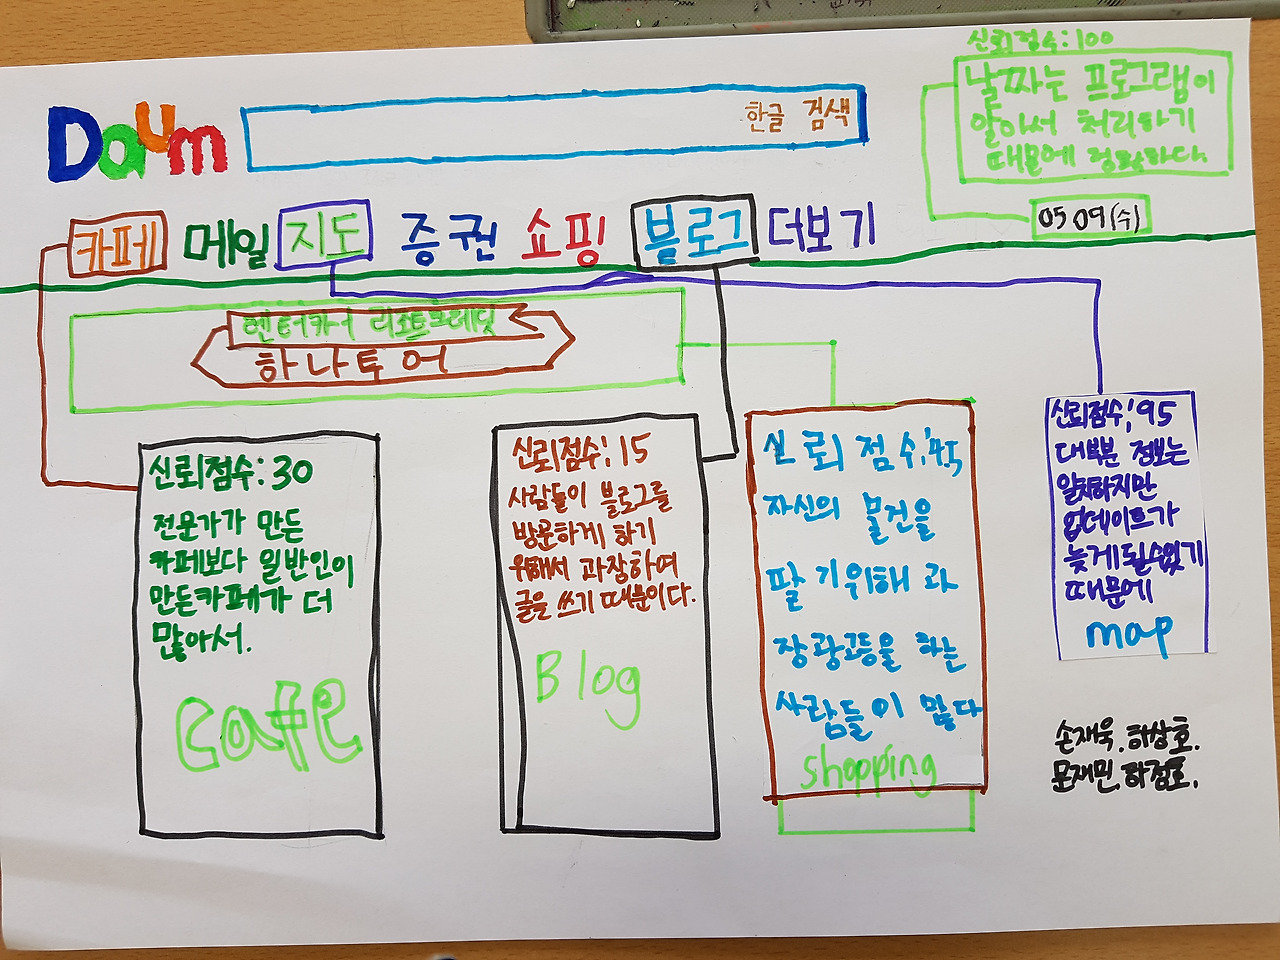 신뢰점수:100
날짜는 프로그램이
알아서 처리하기
때문에 정확하다.
Daum
한글 검색
05.09(수)
카페 메일 지도 증권 쇼핑 블로그 더보기
렌터카 리조트
하나투어
신뢰점수:30
전문가가 만든
카페보다 일반인이
만든카페가 더
많아서.
cafe
신뢰점수:15
사람들이 블로그를
방문하게 하기
위해서 과장하여
글을 쓰기 때문이다.
Blog
신뢰 점수:45
자신의 물건을
팔기위해 과
장광고등을 하는
사람들이 많다
shopping
신뢰점수:95
대부분 정보는
일치하지만
업데이트가
늦게될수있기
때문에
map
손재욱.허상호.
문재민.하정호.